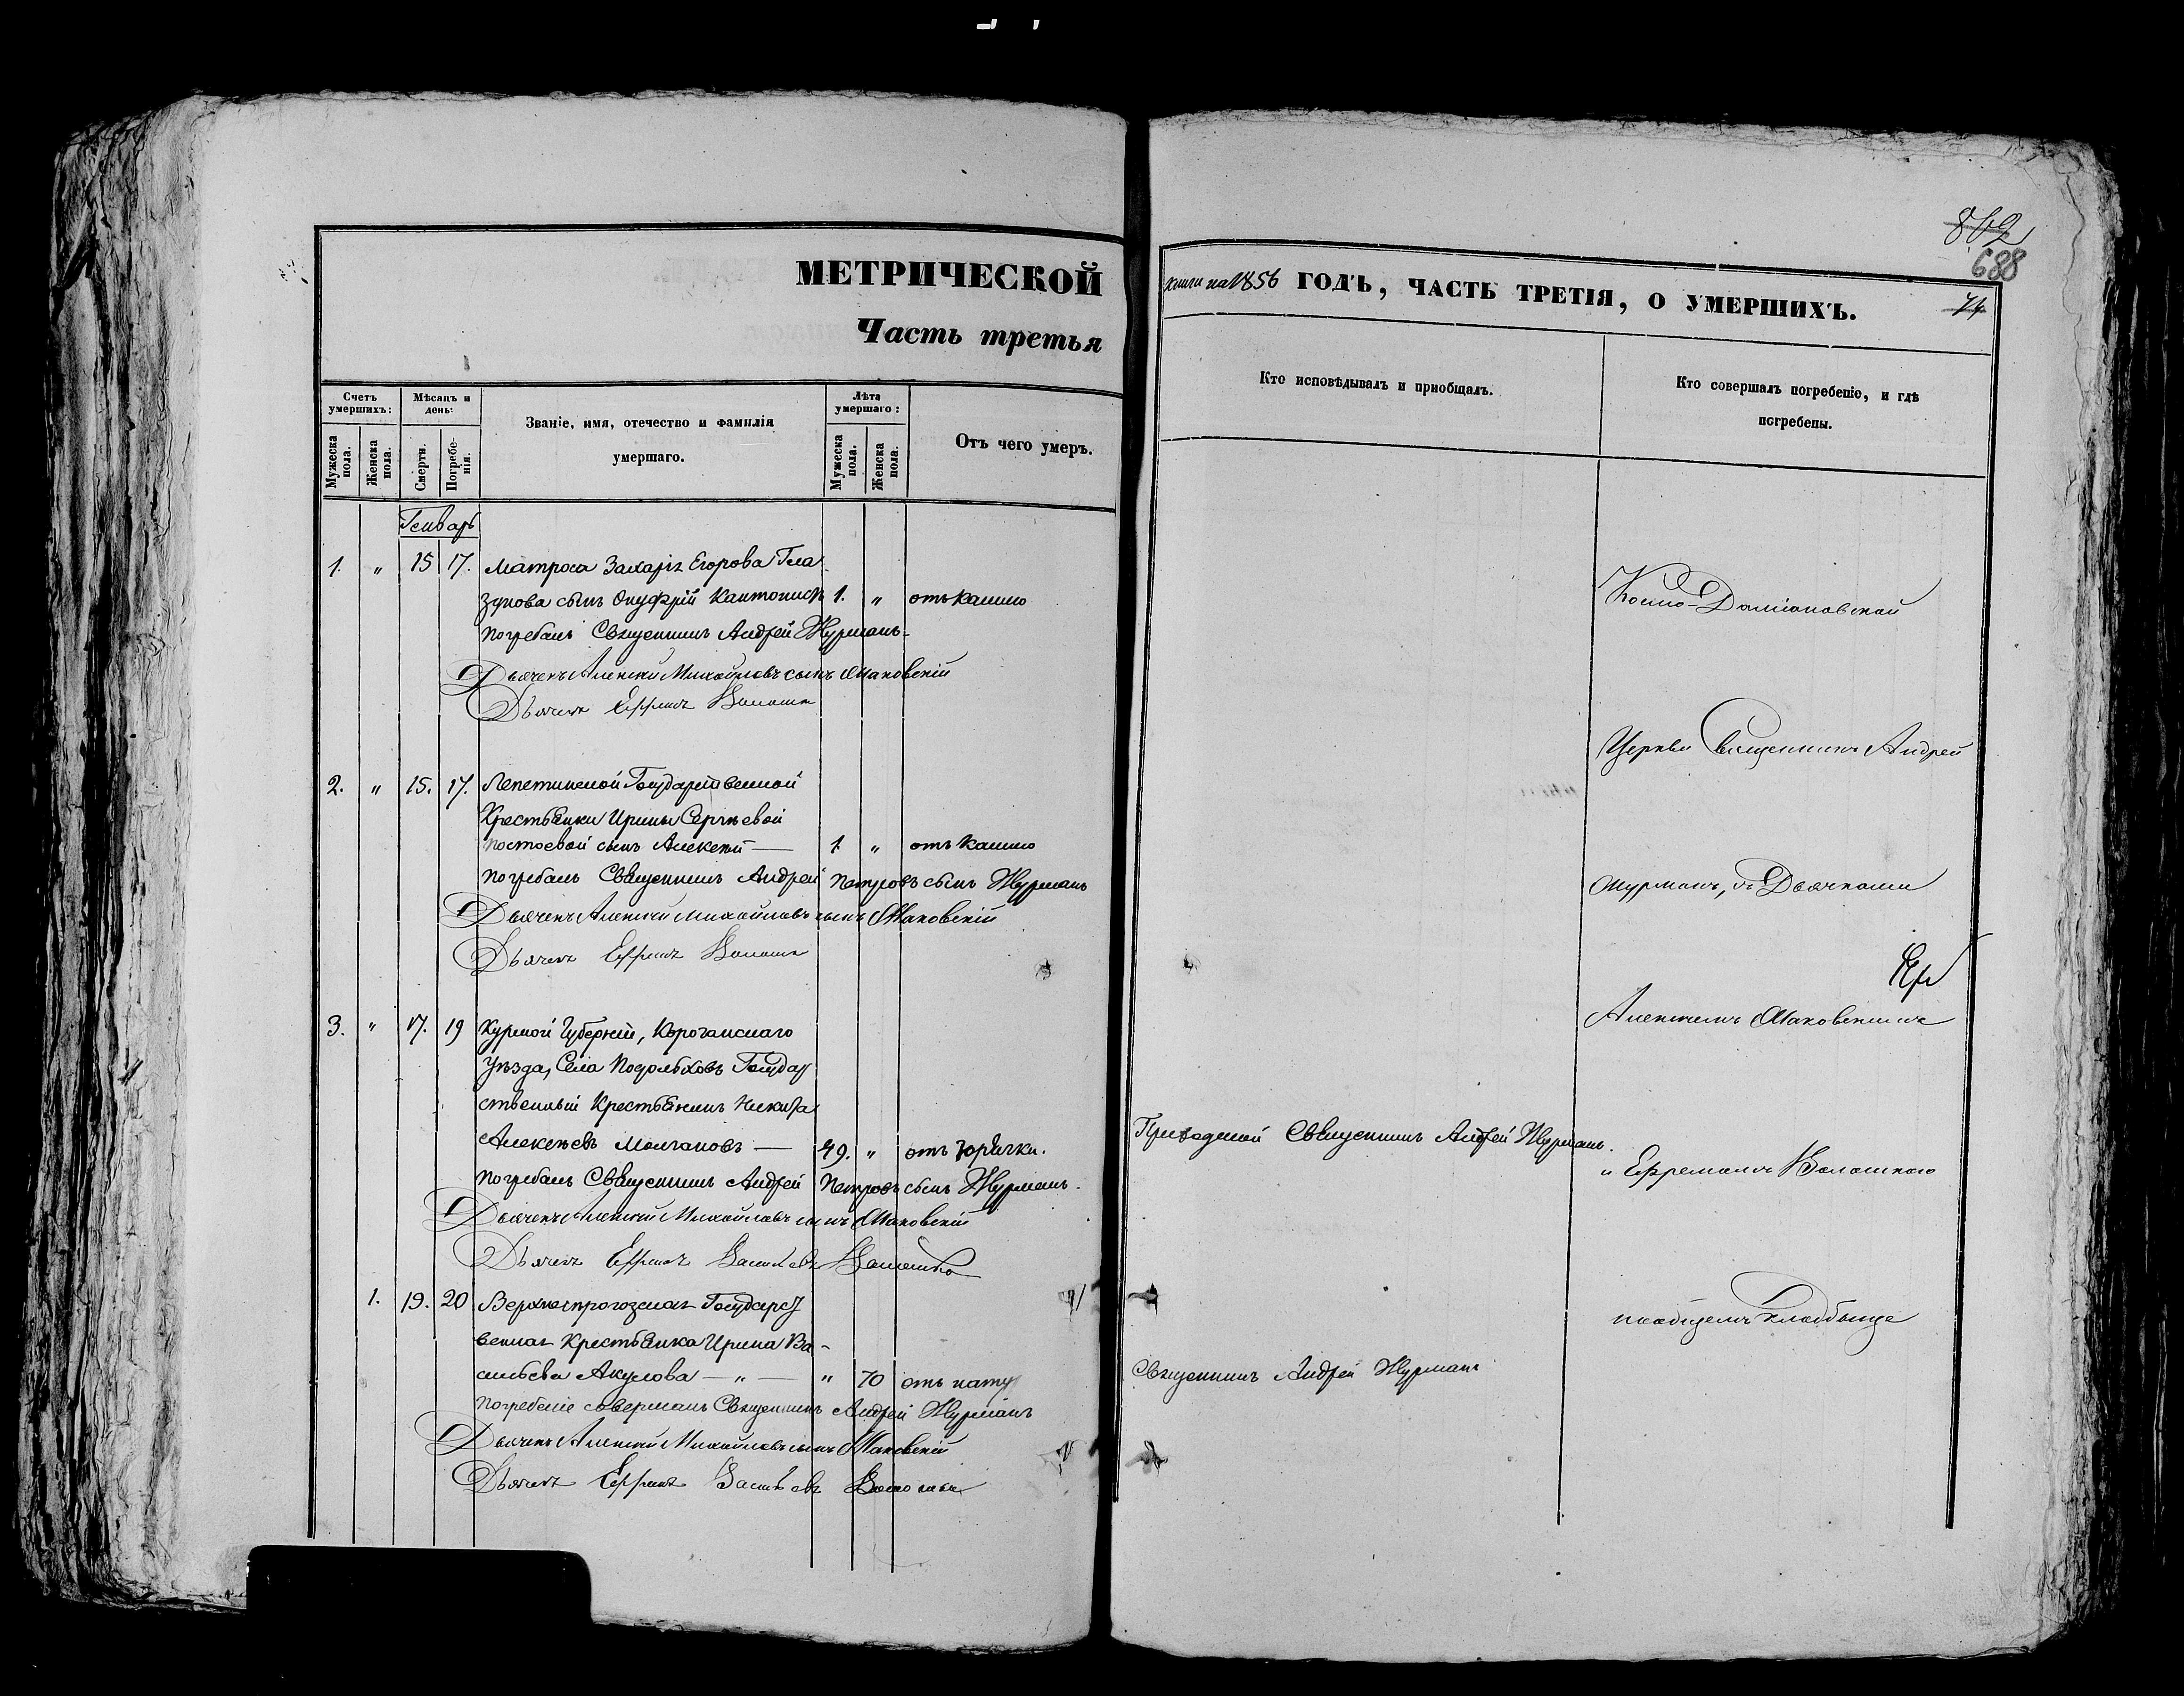 МЕТРИЧЕСКОЙ
Часть третья
Счетъ умершихъ:
Мѣсяцъ и день:
Званіе, имя, отечество и фамилія
умершаго.
Лѣта умершаго:
Отъ чего умеръ.
Мужеска пола.
Женска пола.
Смерти.
Погребенія.
Мужеска пола.
Женска пола.
Генварь
1. " 15 17. Матроса Захарія Егорова Гла
зунова сынъ Онуфрій Кантонистъ 1. " отъ кашлю
Погребалъ Священникъ Андрей Журманъ
Дьячекъ Алексій Михайловъ сынъ Маковскій
Дьячекъ Ефремъ
2. " 15. 17. Лепетиской Государственной
Крестьянки Ирины Сергѣевой
сынъ Алексѣй — 1 " отъ кашлю
Погребалъ Священникъ Андрей Петровъ сынъ Журманъ
Дьячекъ Алексій Михайловъ сынъ Маковскій
Дьячекъ Ефремъ
3. " 17. 19 Курской Губерніи, Корочанскаго
Уѣзда, Села Подольховъ Государ
ственный Крестьянинъ Никита
Алексѣевъ Молчановъ — 49. " отъ горячки.
Погребалъ Священникъ Андрей Петровъ сынъ Журманъ.
Дьячекъ Алексій Михайловъ сынъ Маковскій
Дьячекъ Ефремъ Волошко
1. 19. 20 Верхнерогозская Государст
венная Крестьянка Ирина Ва-
сильева Акулова — " — " 70 отъ нату
Погребеніе совершалъ Священникъ Андрей Журманъ
Дьячекъ Алексій Михайловъ сынъ Маковскій
Дьячекъ Ефремъ
862
688
книги на 1856 ГОДЪ, ЧАСТЬ ТРЕТІЯ, О УМЕРШИХЪ.
Кто исповѣдывалъ и приобщалъ.
Кто совершалъ погребеніе, и гдѣ
погребены.
Космо-Даміановской
Церкви Священникъ Андрей
Журманъ, съ Дьячками
Алексіемъ Маковскимъ
Приходской Священникъ Андрей Журманъ.
и Ефремомъ Волошкою
на общемъ кладбыще
Священникъ Андрей Журманъ